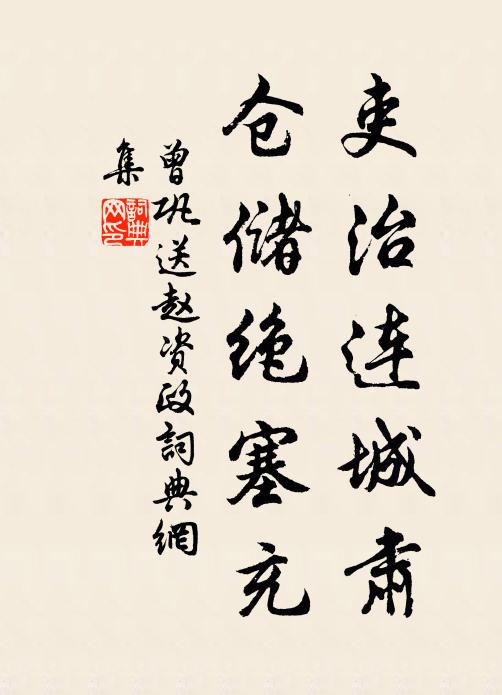 吏治连城肃
仓储绝塞充
曾巩送赵资政詞典網
集
詞典
网印